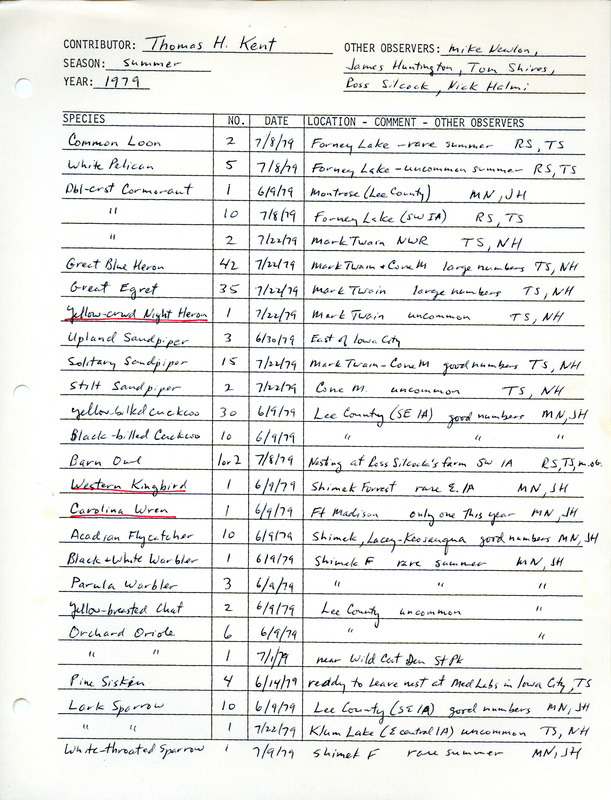 CONTRIBUTOR: Thomas H. Kent OTHER OBSERVERS: Mike Newlon,
SEASON: Summer James Huntington, Tom Shires,
YEAR: 1979 Ross Silcock, Nick Halmi
SPECIES NO. DATE LOCATION - COMMENT - OTHER OBSERVERS
Common Loon 2 7/8/79 Forney Lake - rare summer RS, TS
White Pelican 5 7/8/79 Forney Lake - uncommon summer RS, TS
Dbl-crst Cormorant 1 6/9/79 Montrose (Lee County) MN, JH
" 10 7/8/79 Forney Lake (SW IA) RS, TS
" 2 7/22/79 Mark Twain NWR TS, NH
Great Blue Heron 42 7/22/79 Mark Twain + Cone M large numbers TS, NH
Great Egret 35 7/22/79 Mark Twain large numbers TS, NH
Yellow-crwd Night Heron 1 7/22/79 Mark Twain uncommon TS, NH
Upland Sandpiper 3 6/30/79 East of Iowa City
Solitary Sandpiper 15 7/22/79 Mark Twain - Cone M good numbers TS, NH
Stilt Sandpiper 2 7/22/79 Cone M. uncommon TS, NH
Yellow-billed cuckoo 30 6/9/79 Lee County (SE IA) good numbers MN, JH
Black-billed Cuckoo 10 6/9/79 " " "
Barn Owl 1 or 2 7/8/79 Nesting at Ross Silcock's farm SW IA RS, TS, m.ob.
Western Kingbird 1 6/9/79 Shimek Forrest rare E. IA MN, JH
Carolina Wren 1 6/9/79 Ft Madison only one this year MN, JH
Acadian Flycatcher 10 6/9/79 Shimek, Lacey-Keosauqua good numbers MN, JH
Black + White Warbler 1 6/9/79 Shimek F rare summer MN, JH
Parula Warbler 3 6/9/79 " " "
Yellow-breasted Chat 2 6/9/79 Lee County uncommon "
Orchard Oriole 6 6/9/79 " "
" " 1 7/1/79 near Wild Cat Den St Pk
Pine Siskin 4 6/14/79 reddy to leave nest at Med Labs in Iowa City, TS
Lark Sparrow 10 6/9/79 Lee County (SE IA) good numbers MN, JH
" " 1 7/22/79 Klum Lake (E central IA) uncommon TS, NH
White-throated Sparrow 1 7/9/79 Shimek F rare summer MN, JH